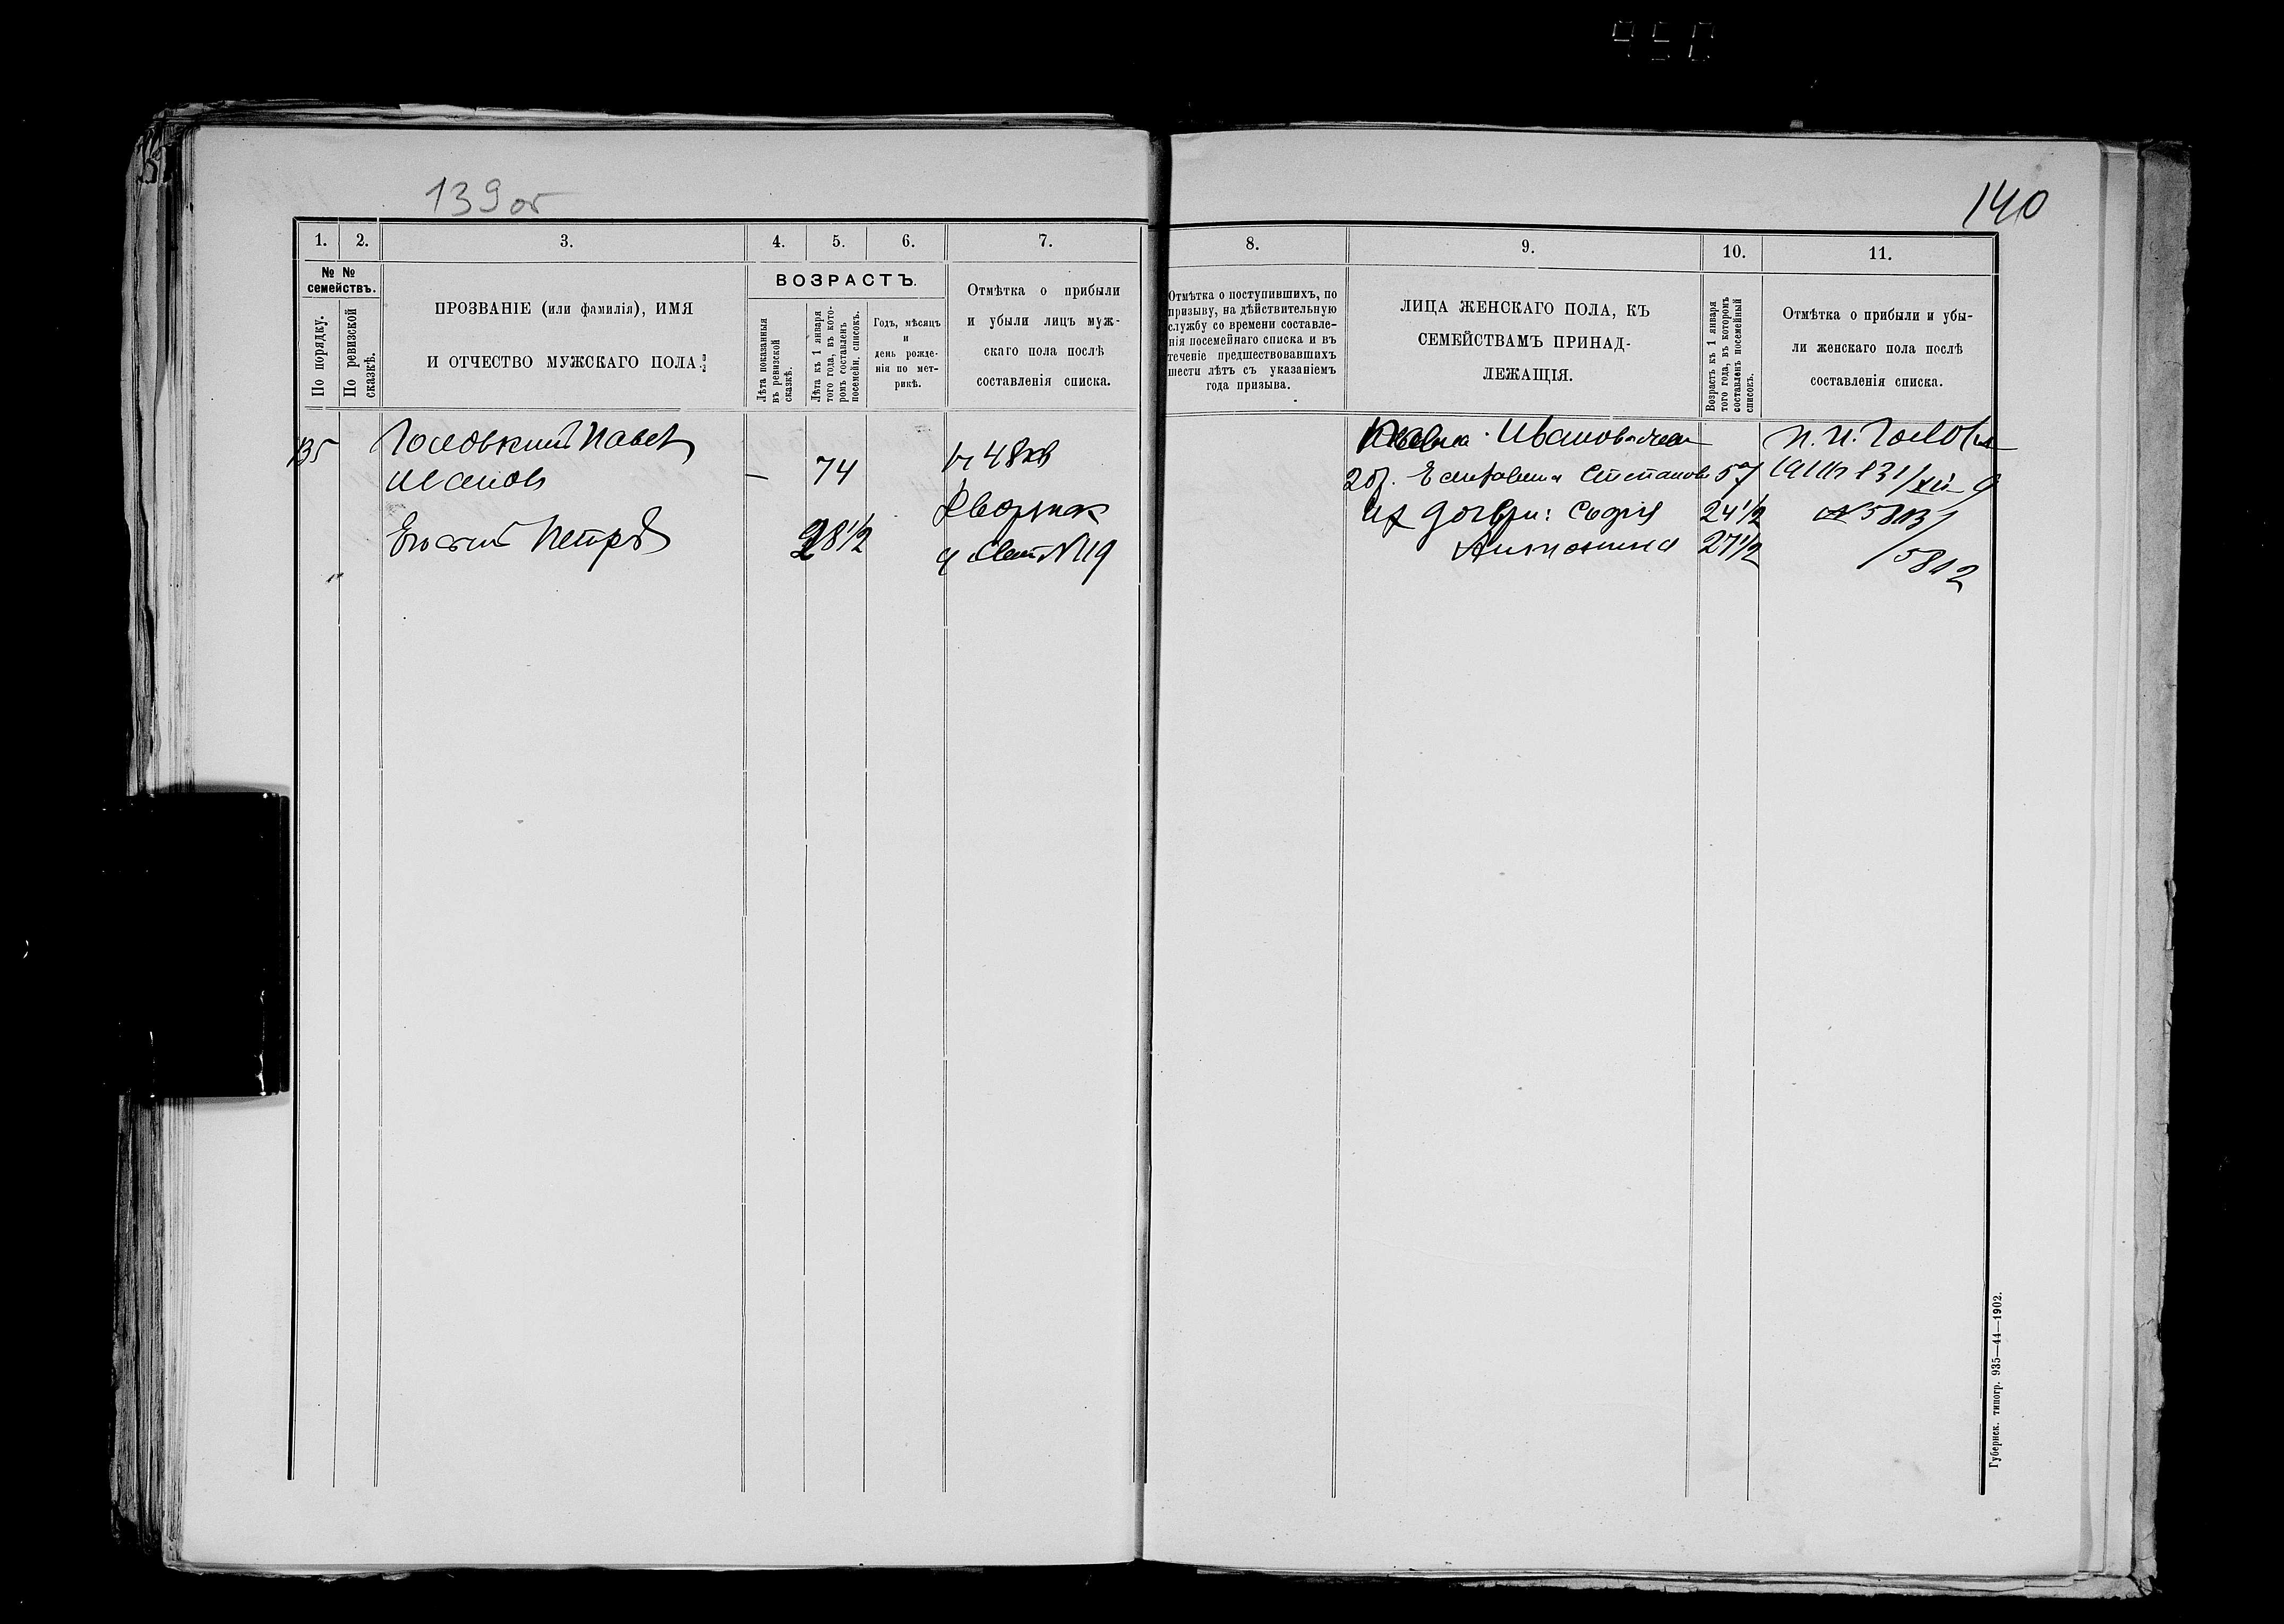 950
139 об
140
1.
2.
3.
4.
5.
6.
7.
8.
9.
10.
11.
№ №
семействъ.
По порядку.
По ревизской
сказкѣ.
ПРОЗВАНІЕ (или фамилія), ИМЯ
И ОТЧЕСТВО МУЖСКАГО ПОЛА.
ВОЗРАСТЪ.
Лѣта показанныя
въ ревизской
сказкѣ.
Лѣта къ 1 января
того года, въ кото-
ромъ составленъ
посемейн. списокъ.
Годъ, мѣсяцъ
и
день рожде-
нія по мет-
рикѣ.
Отмѣтка о прибыли
и убыли лицъ муж-
скаго пола послѣ
составленія списка.
Отмѣтка о поступившихъ, по
призыву, на дѣйствительную
службу со времени составле-
нія посемейнаго списка и въ
теченіе предшествовавшихъ
шести лѣтъ съ указаніемъ
года призыва.
ЛИЦА ЖЕНСКАГО ПОЛА, КЪ
СЕМЕЙСТВАМЪ ПРИНАД-
ЛЕЖАЩІЯ.
Возрастъ къ 1 января
того года, въ которомъ
составленъ посемейный
списокъ.
Отмѣтка о прибыли и убы-
ли женскаго пола послѣ
составленія списка.
135
Павелъ
Ивановъ
—
74
48
Петръ
28 1/2
№ 119
Ивановна
57
Софія
24 1/2
Антонина
27 1/2
П. И.
5813/
/5812
Губернск. типогр. 935—44—1902.